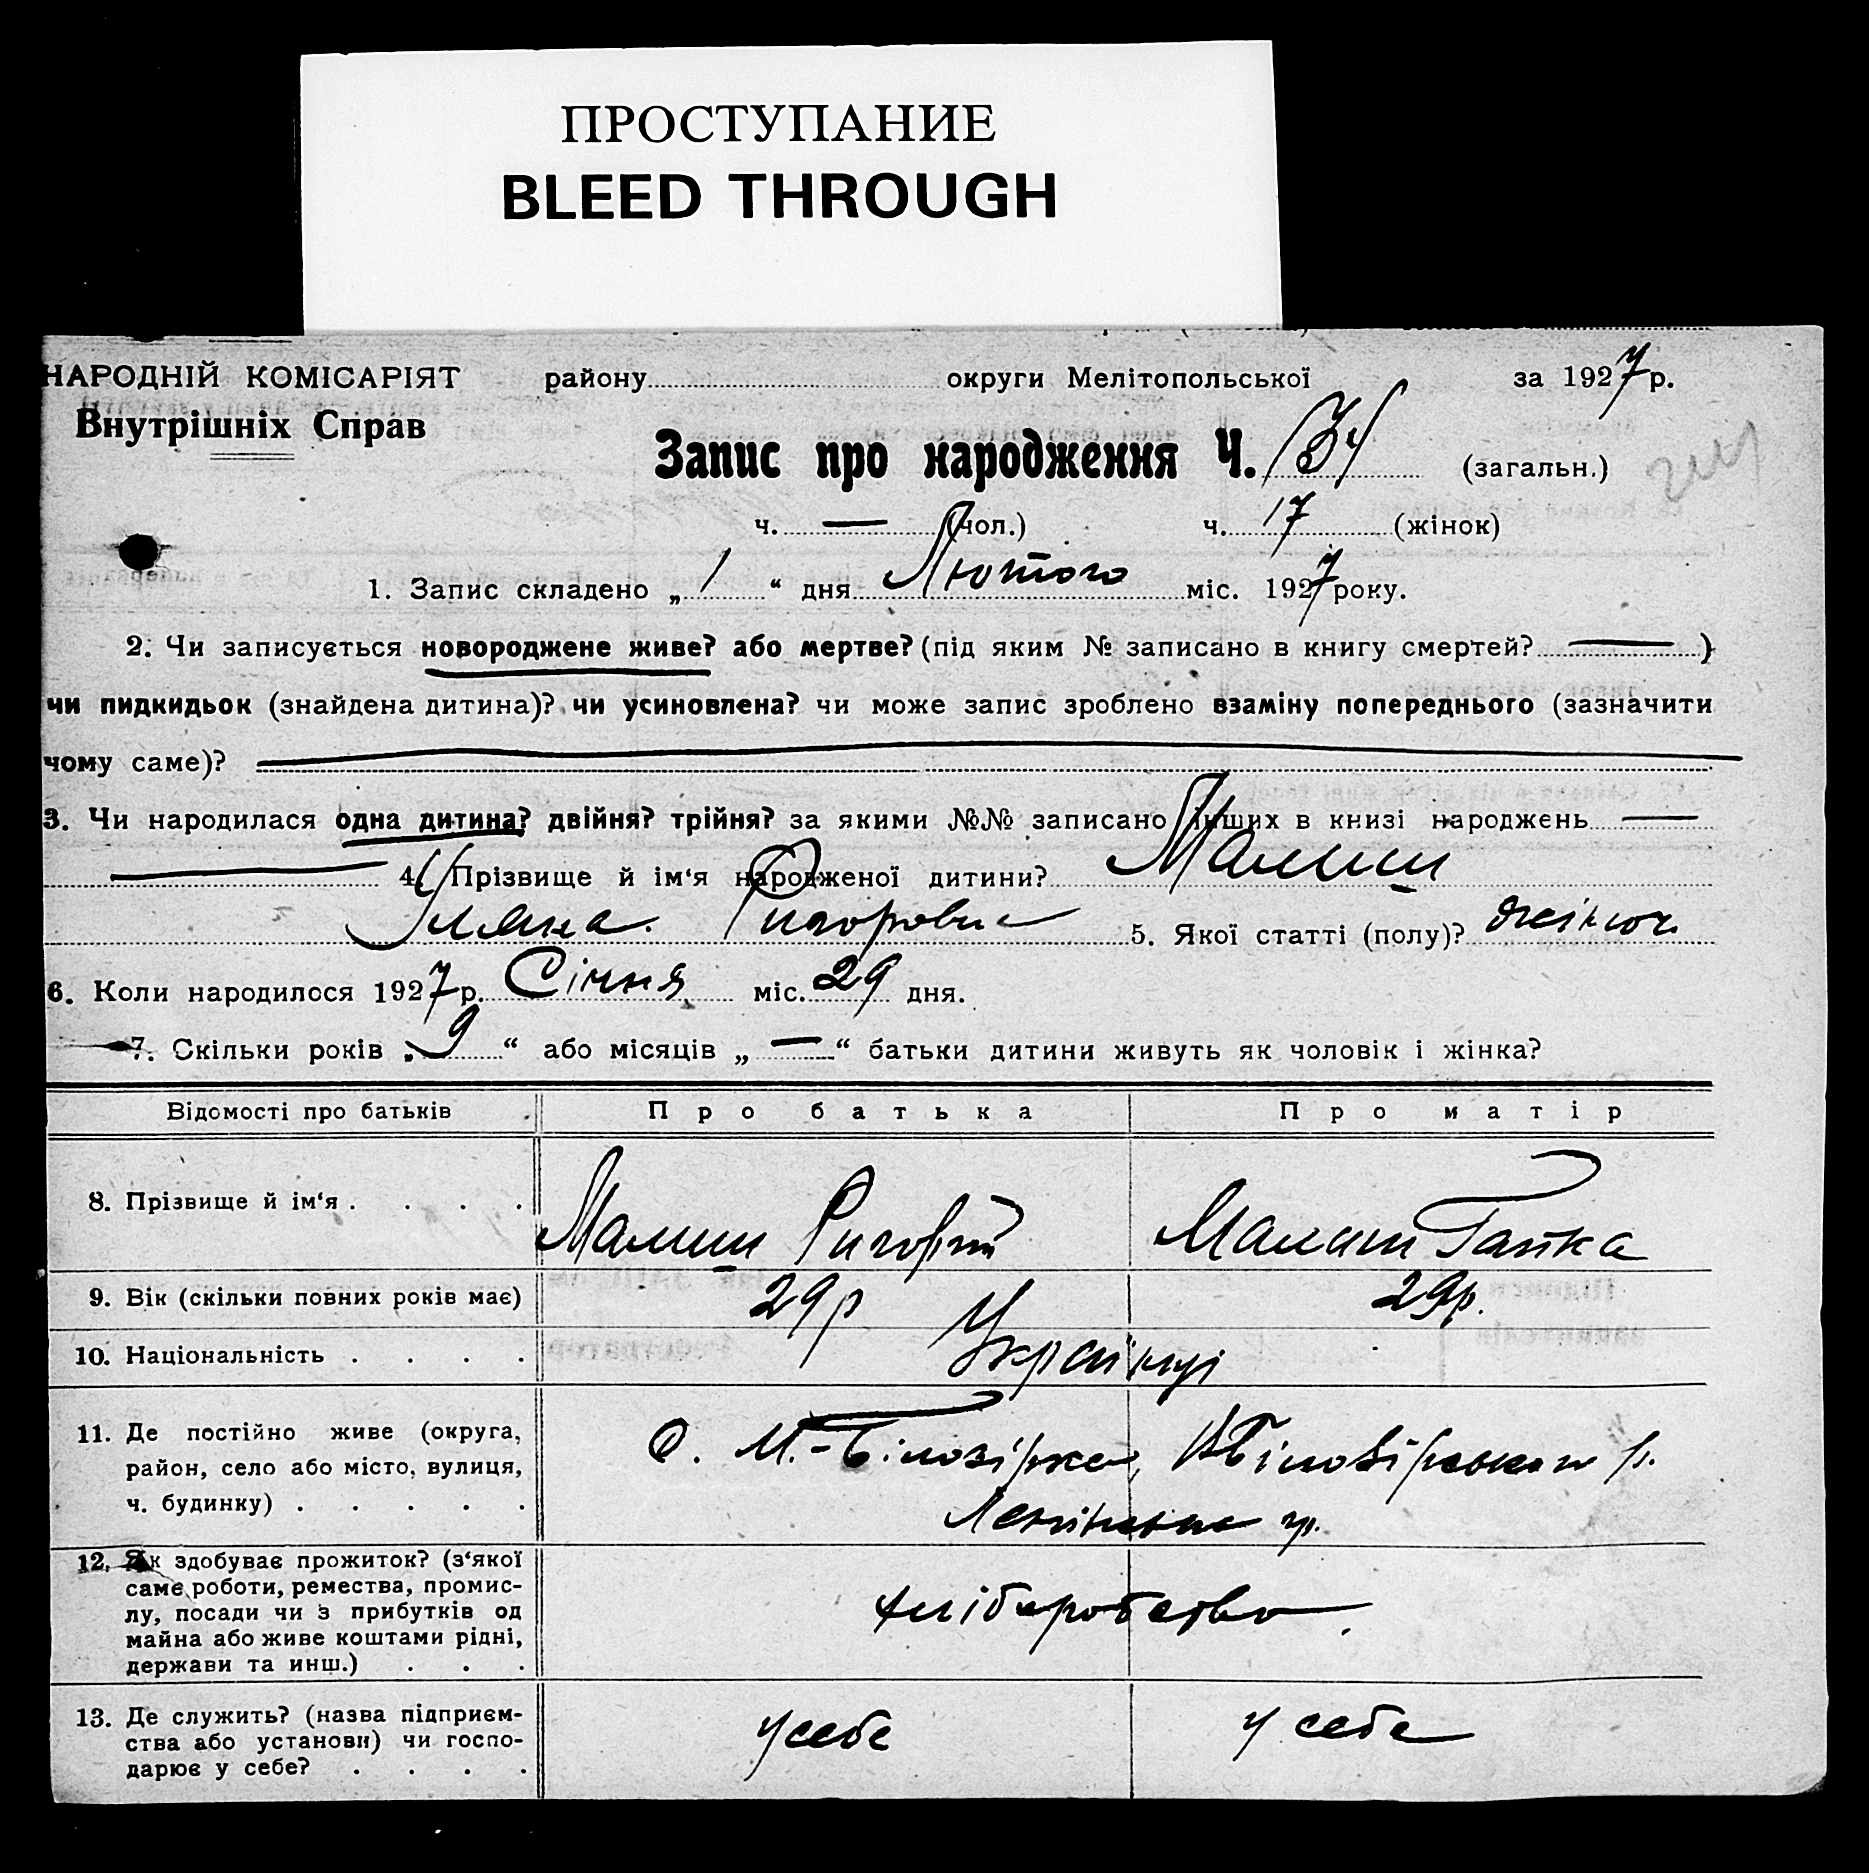 ПРОСТУПАНИЕ
BLEED THROUGH
НАРОДНІЙ КОМІСАРІЯТ району округи Мелітопольської за 1927 р.
Внутрішніх Справ
Запис про народження Ч. 34 (загальн.)
ч. — (чол.) ч. 17 (жінок)
1. Запис складено „ 1 “ дня Лютого міс. 1927 року.
2. Чи записується новороджене живе? або мертве? (під яким № записано в книгу смертей? — )
чи пидкидьок (знайдена дитина)? чи усиновлена? чи може запис зроблено взаміну попереднього (зазначити
чому саме)?
3. Чи народилася одна дитина? двійня? трійня? за якими №№ записано інших в книзі народжень —
— 4. Прізвище й ім‘я народженої дитини? Малиш
Уляна Ригоровна 5. Якої статті (полу)? жіноч.
6. Коли народилося 1927 р. Січня міс. 29 дня.
7. Скільки років „ 9 “ або місяців „ — “ батьки дитини живуть як чоловік і жінка?
Відомості про батьків Про батька Про матір
8. Прізвище й ім‘я . . . . Малиш Ригорій Малиш Гапка
9. Вік (скільки повних років має) 29 р 29 р.
10. Національність . . . . Українці
11. Де постійно живе (округа,
район, село або місто, вулиця,
ч. будинку) . . . . .
С. М.-Білозірка, ВБілозірського р.
12. Як здобуває прожиток? (з‘якої
саме роботи, ремества, промис-
лу, посади чи з прибутків од
майна або живе коштами рідні,
держави та инш.) . . .
хліборобство
13. Де служить? (назва підприєм-
ства або установи) чи госпо-
дарює у себе? . . . .
у себе у себе